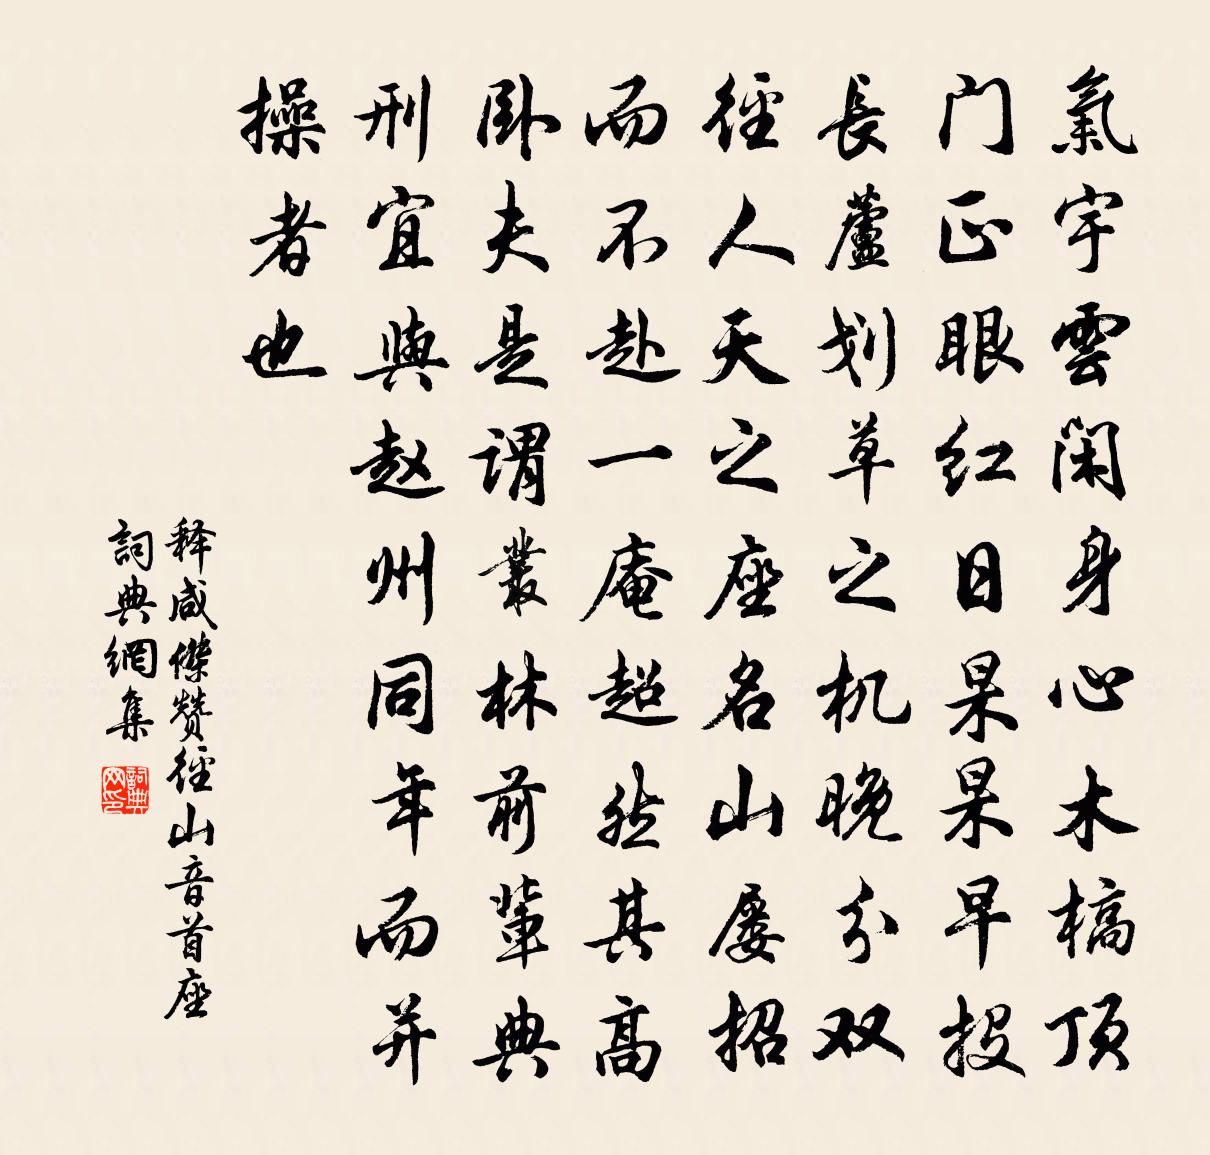 氣宇雲閑身心木槁顶
门正眼红日杲杲早投
長蘆划草之机晚分双
徑人天之座名山屡招
而不赴一庵超然其高
卧夫是謂叢林前輩典
刑宜與赵州同年而并
操者也
释咸傑赞徑山音首座
詞典網集
詞典网印